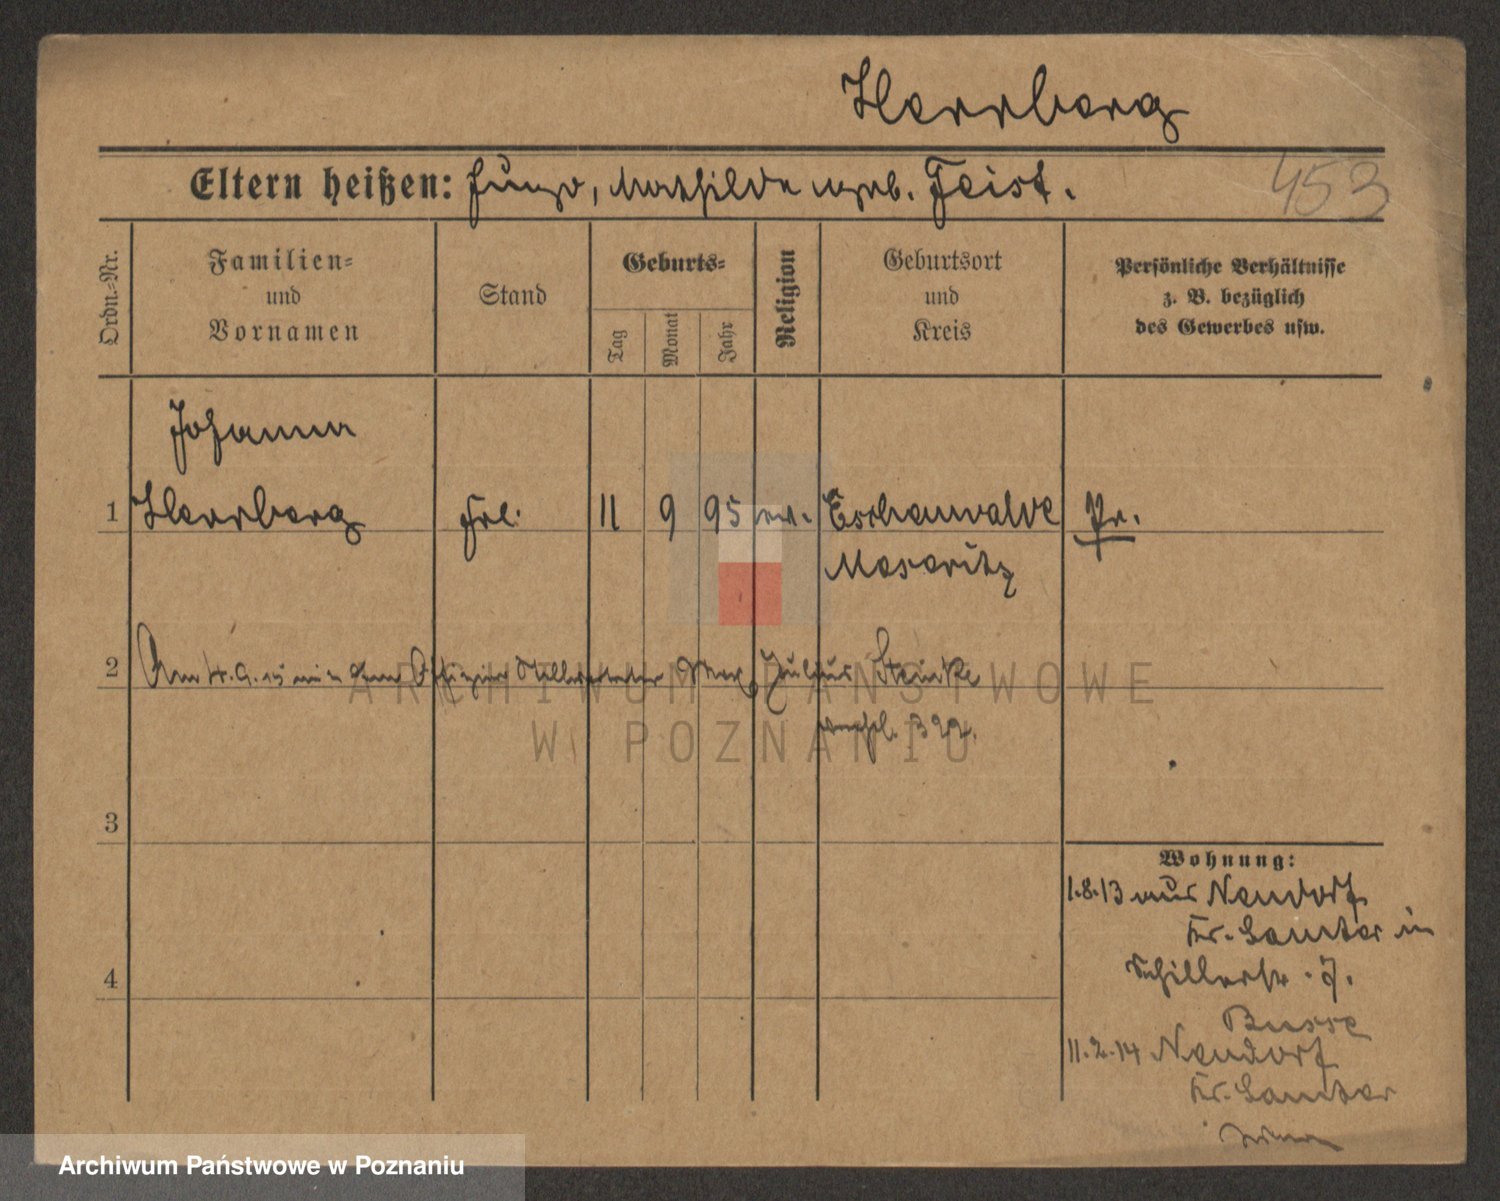 Herrberg
Eltern heißen: Hugo, Mathilde geb. Feist.
453
Ordn.-Nr.
Familien-
und
Vornamen
Stand
Geburts-
Tag
Monat
Jahr
Religion
Geburtsort
und
Kreis
Persönliche Verhältnisse
z. B. bezüglich
des Gewerbes usw.
Johanna
1 Herrberg Frl. 11 9 95 ev. Eschenwalde Pr.
Meseritz
2 Am 15 mit dem Offizier Stellvertreter Max Julius Steinke
verehl. 322.
3
4
Wohnung:
1.8.13 aus Neudorf
Kr. Samter in
Schillerstr. 7.
Busse
11.2.14 Neudorf
Kr. Samter
ARCHIWUM PAŃSTWOWE
W POZNANIU
Archiwum Państwowe w Poznaniu